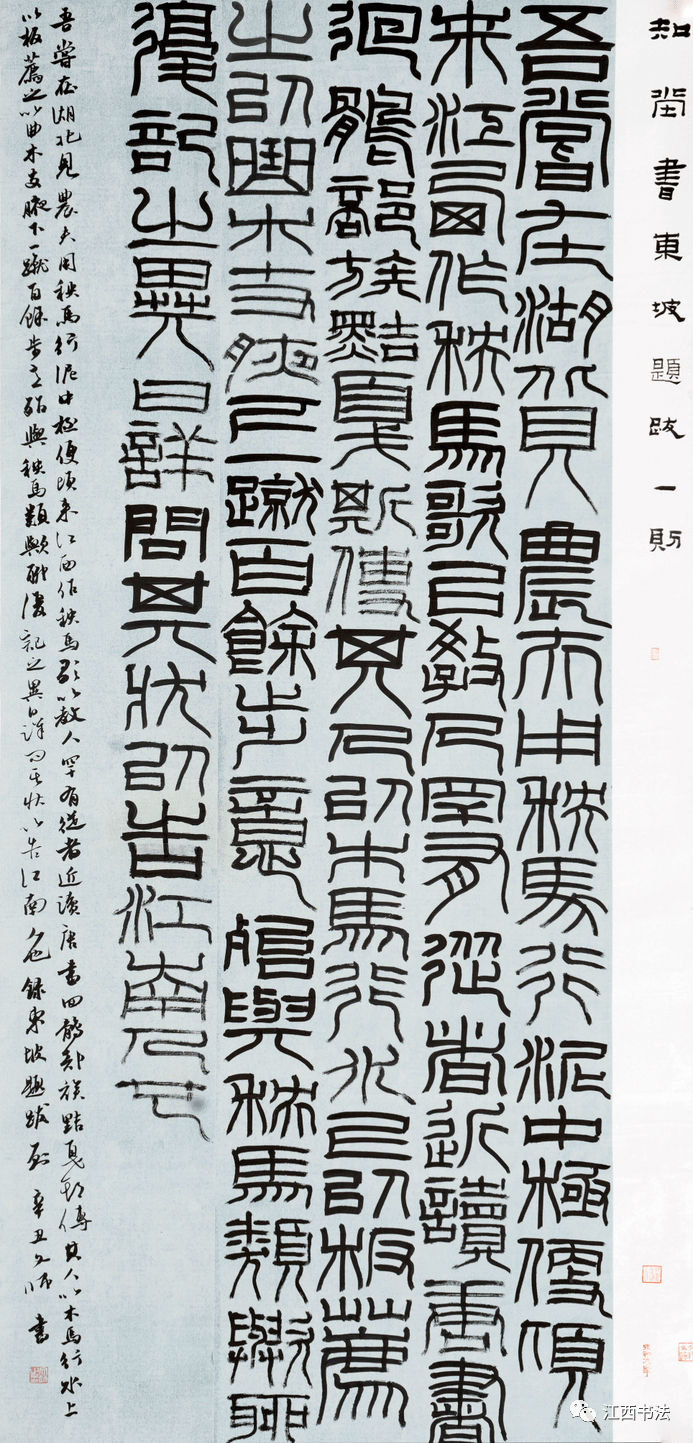 知堂書東坡題跋一則
吾嘗在湖北見農夫用秧馬行泥中極便頃
來江西作秧馬歌以教人罕有從者近讀唐書
迴鶻部族黠戛斯傳其人以木馬行水上以板薦
之以曲木支腋下一蹴百餘步意殆與秧馬類歟聊
復記之異日詳問其狀以告江南人也
吾嘗在湖北見農夫用秧馬行泥中極便頃來江西作秧馬歌以教人罕有從者近讀唐書回鶻部族黠戛斯傳其人以木馬行水上
以板薦之以曲木支腋下一蹴百餘步意殆與秧馬類歟聊復記之異日詳問其狀以告江南人也錄東坡題跋 辛丑 書
江西书法